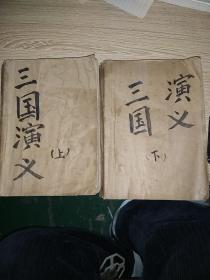 三国演义
（上）
三国
演义
（下）